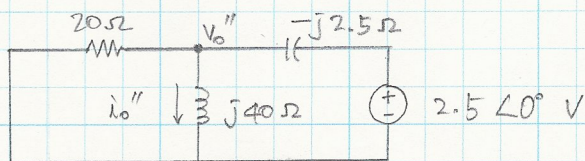 20Ω
V₀"
-j2.5Ω
i₀"
j40Ω
+
-
2.5∠0° V